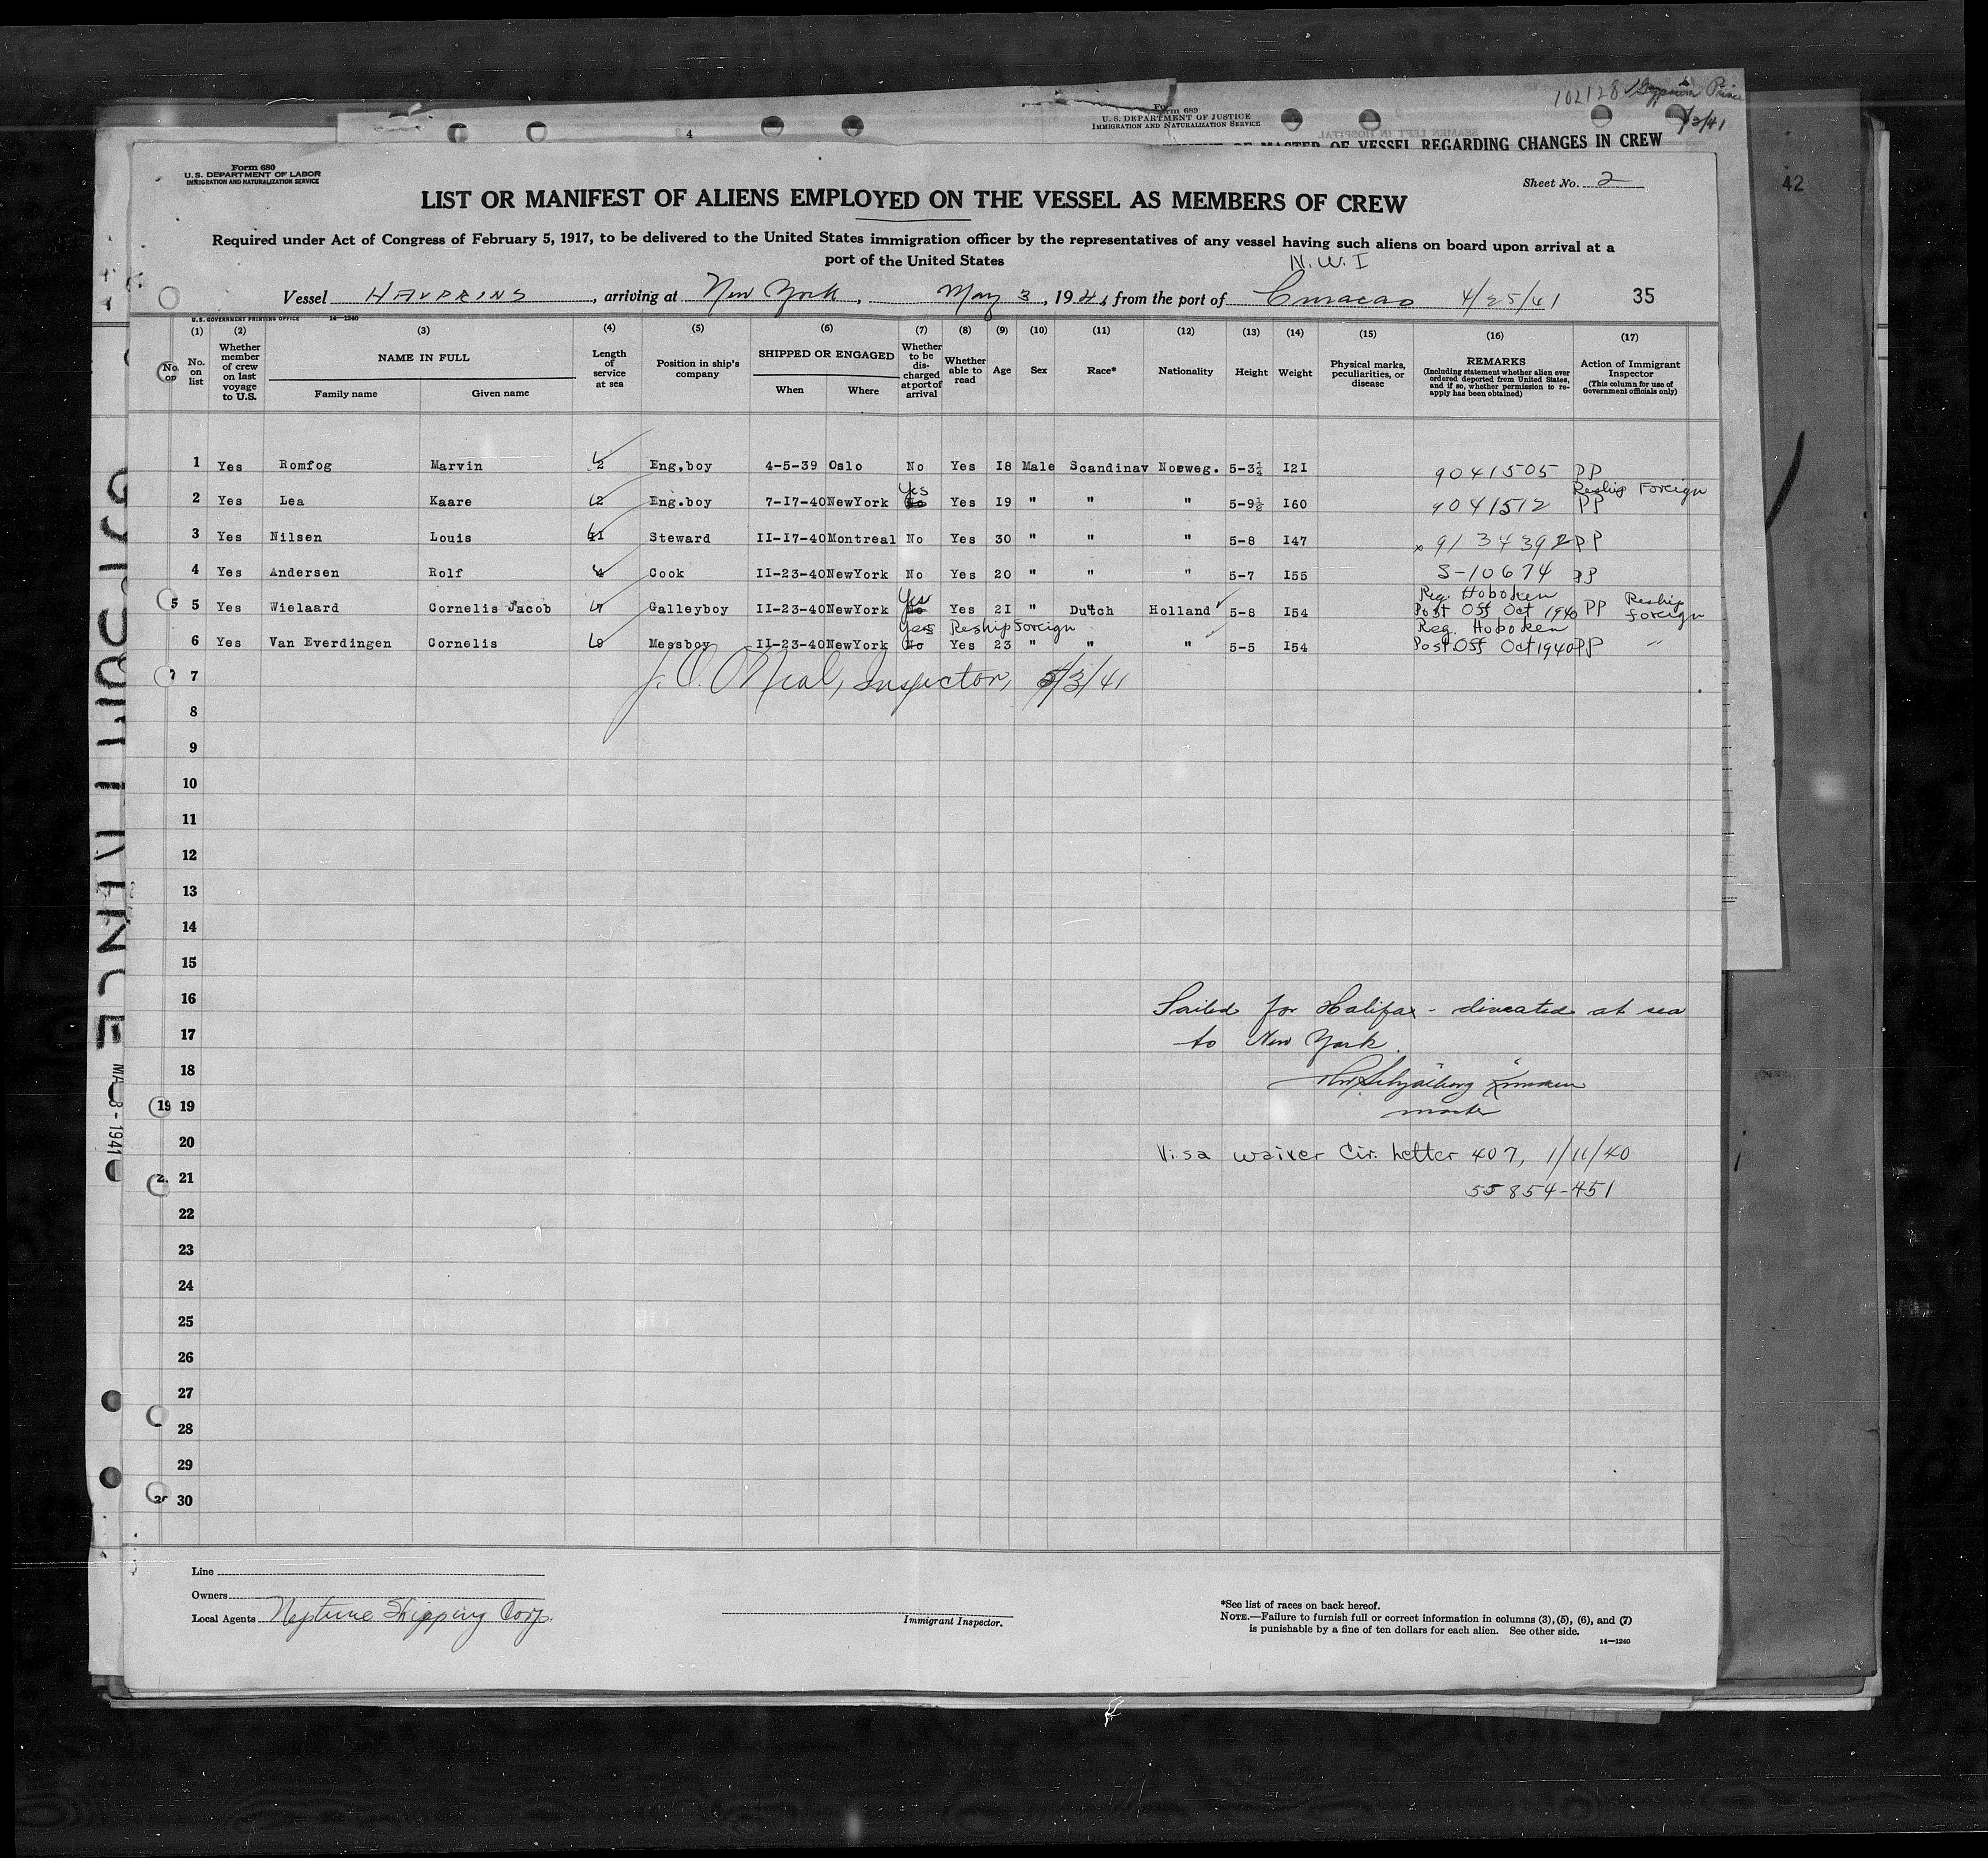 102128
5/3/41
Form 689
U.S. DEPARTMENT OF JUSTICE
IMMIGRATION AND NATURALIZATION SERVICE
OF MASTER OF VESSEL REGARDING CHANGES IN CREW
4
42
Form 680
U.S. DEPARTMENT OF LABOR
IMMIGRATION AND NATURALIZATION SERVICE
Sheet No. 2
LIST OR MANIFEST OF ALIENS EMPLOYED ON THE VESSEL AS MEMBERS OF CREW
Required under Act of Congress of February 5, 1917, to be delivered to the United States immigration officer by the representatives of any vessel having such aliens on board upon arrival at a
port of the United States
N.W.I
Vessel HAVPRINS, arriving at New York, May 3, 1941, from the port of Curacao 4/25/41
35
U.S. GOVERNMENT PRINTING OFFICE 14-1240
(1) No. on list
(2) Whether member of crew on last voyage to U.S.
(3) NAME IN FULL Family name Given name
(4) Length of service at sea
(5) Position in ship's company
(6) SHIPPED OR ENGAGED When Where
(7) Whether to be discharged at port of arrival
(8) Whether able to read
(9) Age
(10) Sex
(11) Race*
(12) Nationality
(13) Height
(14) Weight
(15) Physical marks, peculiarities, or disease
(16) REMARKS (Including statement whether alien ever ordered deported from United States, and if so, whether permission to reapply has been obtained)
(17) Action of Immigrant Inspector (This column for use of Government officials only)
1 Yes Romfog Marvin 2 Eng,boy 4-5-39 Oslo No Yes I8 Male Scandinav Norweg. 5-3¼ I2I 9041505 PP
2 Yes Lea Kaare 2 Eng.boy 7-17-40 NewYork No Yes Yes I9 " " " 5-9½ I60 9041512 PP Reship Foreign
3 Yes Nilsen Louis 11 Steward II-17-40 Montreal No Yes 30 " " " 5-8 I47 x 9134392 PP
4 Yes Andersen Rolf 4 Cook II-23-40 NewYork No Yes 20 " " " 5-7 I55 S-10674 PP
5 Yes Wielaard Cornelis Jacob Galleyboy II-23-40 NewYork No Yes Yes 2I " Dutch Holland 5-8 I54 Reg. Hoboken Post Off Oct 1940 PP Reship foreign
6 Yes Van Everdingen Cornelis Messboy II-23-40 NewYork No Yes Reship Foreign Yes 23 " " " 5-5 I54 Reg. Hoboken Post.Off Oct 1940 PP "
7 J. O'Neal, Inspector, 5/3/41
8
9
10
11
12
13
14
15
16 Sailed for Halifax - diverted at sea
17 to New York.
18
19 master
20 Visa waiver Cir. Letter 407, 1/11/40
21 55854-451
22
23
24
25
26
27
28
29
30
Line
Owners
Local Agents Neptune Shipping Corp.
Immigrant Inspector.
*See list of races on back hereof.
NOTE.—Failure to furnish full or correct information in columns (3), (5), (6), and (7)
is punishable by a fine of ten dollars for each alien. See other side.
14-1240